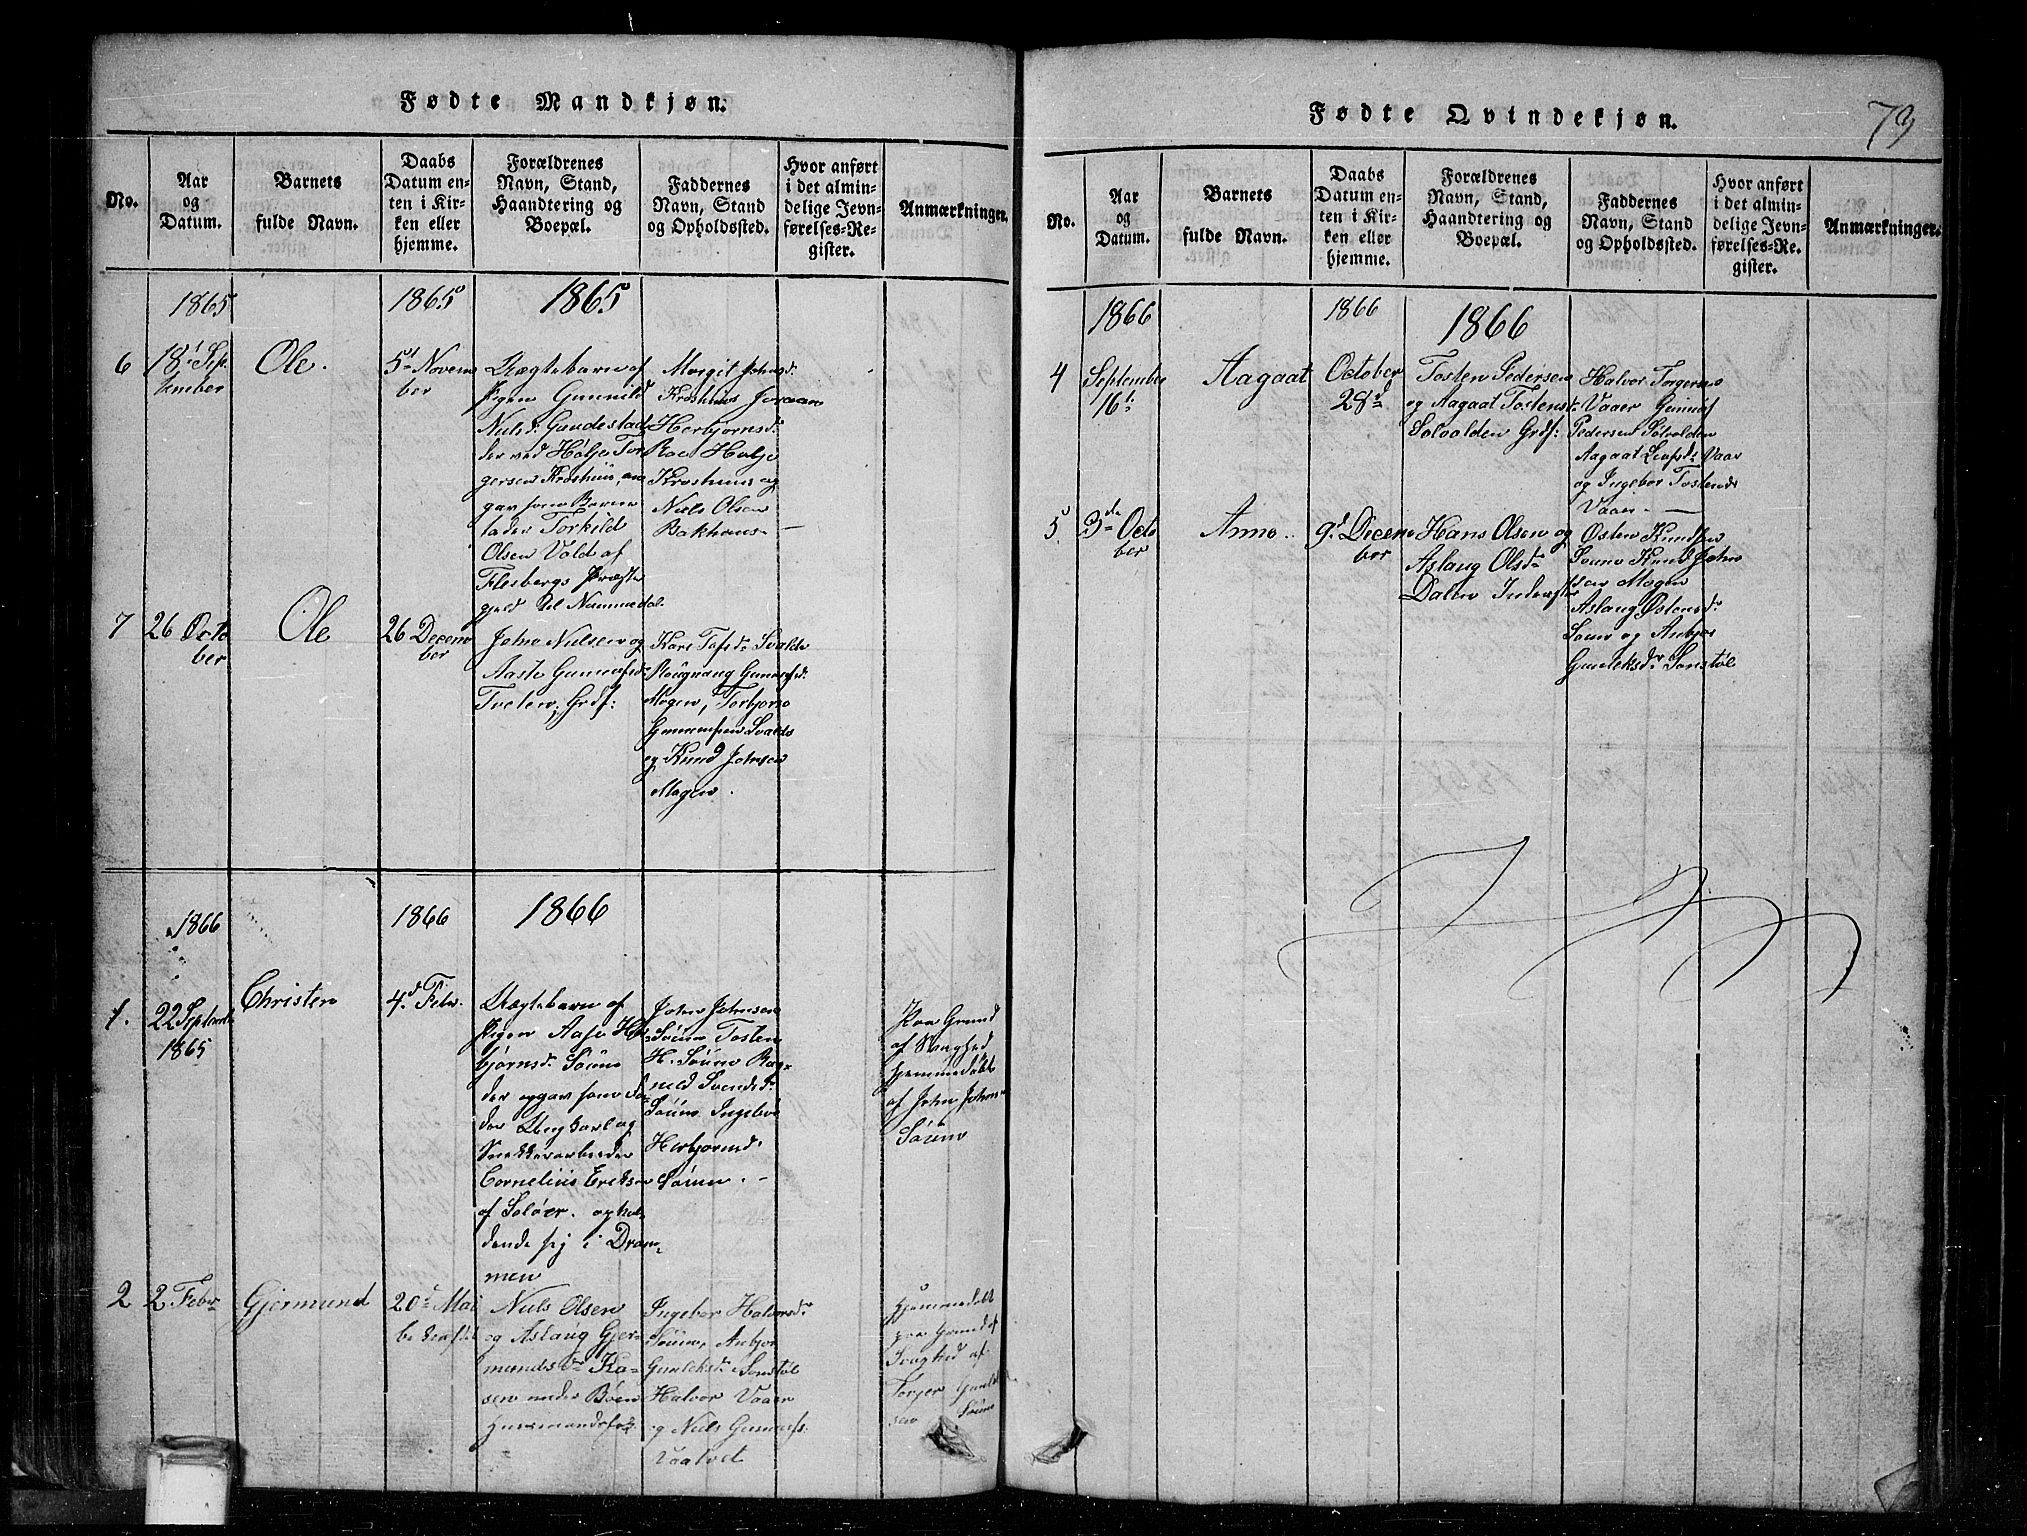 Fødte Mandkjøn.
No.
Aar
og
Datum.
Barnets
fulde Navn.
Daabs
Datum en-
ten i Kir-
ken eller
hjemme.
Forældrenes
Navn, Stand,
Haandtering og
Boepæl.
Faddernes
Navn, Stand
og Opholdssted.
Hvor anført
i det almin-
delige Jevn-
førelses-Re-
gister.
Anmærkninger.
1865
1865
1865
6
18de Sep
tember
Ole.
5te Novem
ber
Uægtebarn af
Pigen Gunnild
Nielsd. Gaudestad
der ved Holje Tor
gersen Kroshuus, an
gav som Barne
fader Torkild
Olsen Vold af
Flesbergs Præste
gjeld til Nummedal.
Margit Johnsd.
Kroshuus Joraan
Herbjørnsd.
Roe Holje
Kroshuus og
Niels Olsen
Bakhuus
7
26 Octo
ber
Ole
26 Decem
ber
John Nielsen og
Aaste Gunnufsd.
Tveten, Grdf:
Kari Tafsd. Svalde
Rougnoug Gunnufsd.
Mogen, Torbjørn
Svalds
og Knud Johnsen
Mogen.
1866
1866
1866
1.
22 Septembr
1865
Christen
4d Febr.
Uægtebarn af
Pigen Aase Her
bjørnsd. Søum
der opgav som Fa
der Ungkarl og
Snekkerarbeider
Cornelius Eriksen
af Soløer. ophol
dende sig i Dram
men
John Johnsen
Søum Tosten
H. Søum Rag
nild Svendsd.
Søum Ingebor
Herbjørnsd.
Søum. -
Paa Grund
af Svaghed
hjemmedøbt
af John Johns
Søum
2
2 Febr
Gjermund
20de Mai
bekræftet
Niels Olsen
og Aslaug Gjer
mundsdr Ka
sen under Bøen
Huusmandsfolk
Ingebor Halvorsdr
Søum, Anbjør
Gunleksdr Sonstøl
Halvor Vaaer
og Niels Gunnufs.
Vaatvet
hjemmedøbt
paa Grund af
Svaghed af
Torger Gunlek
sen Søum
Fødte Qvindekjøn.
73
No.
Aar
og
Datum.
Barnets
fulde Navn.
Daabs
Datum en-
ten i Kir-
ken eller
hjemme.
Forældrenes
Navn, Stand,
Haandtering og
Boepæl.
Faddernes
Navn, Stand
og Opholdssted.
Hvor anført
i det almin-
delige Jevn-
førelses-Re-
gister.
Anmærkninger.
1866
1866
1866
4
September
16de
Aagaat
October
28de
Tosten Pedersen
og Aagaat Tostensdr
Solvolden Grdf:
Halvor Torgersen
Vaaer Gunnuf
Pedersen Solvolden
Aagaat Leifsdr Vaaer
og Ingebor Tostensdr
Vaaer. -
5
3de Octo
ber
Anne
9d Decem
ber
Hans Olsen og
Aslaug Olsdr
Dalen Inderster
Østen Knudsen
Søum Knud John
sen Mogen
Aslaug Østensdr
Søum og Anbjør
Gunleksdr Sonstøl